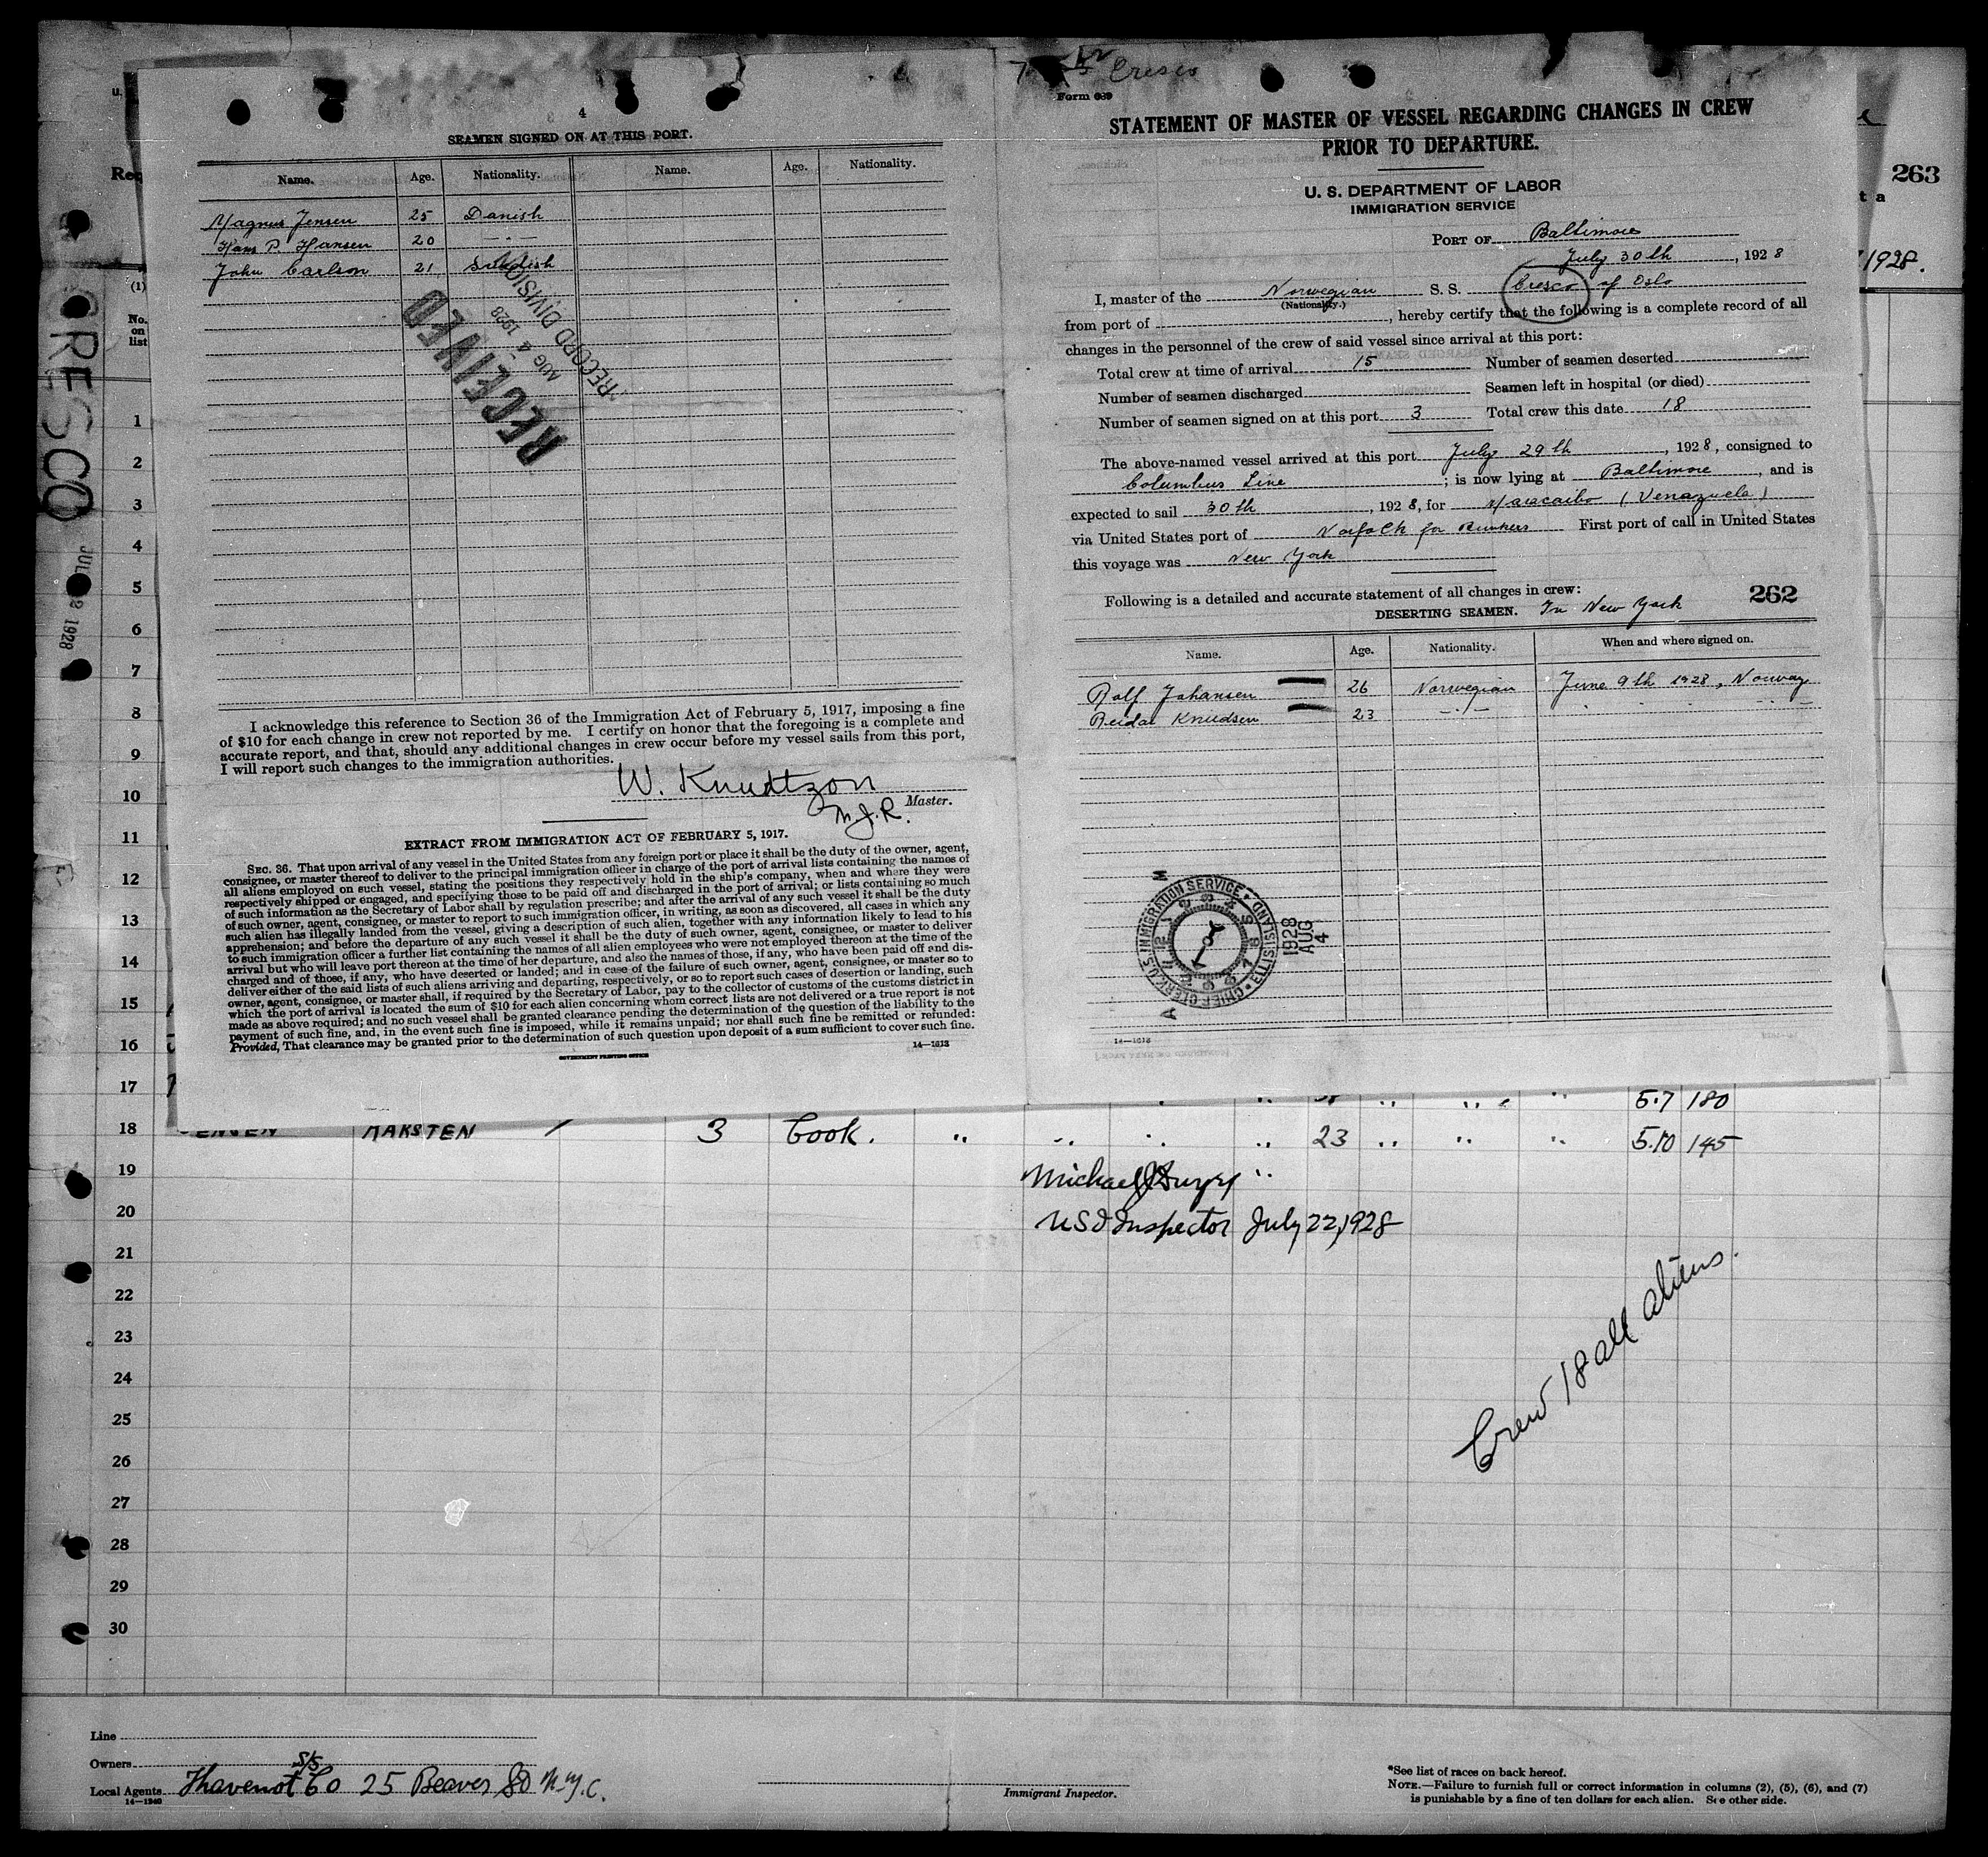 4
SEAMEN SIGNED ON AT THIS PORT.
Name. Age. Nationality. Name. Age. Nationality.
Magnus Jensen 25 Danish
Hans P. Hansen 20 —"—
John Carlson 21 Swedish
RECEIVED
AUG 4 - 1928
RECORD DIVISION
I acknowledge this reference to Section 36 of the Immigration Act of February 5, 1917, imposing a fine
of $10 for each change in crew not reported by me. I certify on honor that the foregoing is a complete and
accurate report, and that, should any additional changes in crew occur before my vessel sails from this port,
I will report such changes to the immigration authorities.
W. Knudtzon
Master.
M.J.R.
EXTRACT FROM IMMIGRATION ACT OF FEBRUARY 5, 1917.
SEC. 36. That upon arrival of any vessel in the United States from any foreign port or place it shall be the duty of the owner, agent,
consignee, or master thereof to deliver to the principal immigration officer in charge of the port of arrival lists containing the names of
all aliens employed on such vessel, stating the positions they respectively hold in the ship's company, when and where they were
respectively shipped or engaged, and specifying those to be paid off and discharged in the port of arrival; or lists containing so much
of such information as the Secretary of Labor shall by regulation prescribe; and after the arrival of any such vessel it shall be the duty
of such owner, agent, consignee, or master to report to such immigration officer, in writing, as soon as discovered, all cases in which any
such alien has illegally landed from the vessel, giving a description of such alien, together with any information likely to lead to his
apprehension; and before the departure of any such vessel it shall be the duty of such owner, agent, consignee, or master to deliver
to such immigration officer a further list containing the names of all alien employees who were not employed thereon at the time of the
arrival but who will leave port thereon at the time of her departure, and also the names of those, if any, who have been paid off and dis-
charged and of those, if any, who have deserted or landed; and in case of the failure of such owner, agent, consignee, or master so to
deliver either of the said lists of such aliens arriving and departing, respectively, or so to report such cases of desertion or landing, such
owner, agent, consignee, or master shall, if required by the Secretary of Labor, pay to the collector of customs of the customs district in
which the port of arrival is located the sum of $10 for each alien concerning whom correct lists are not delivered or a true report is not
made as above required; and no such vessel shall be granted clearance pending the determination of the question of the liability to the
payment of such fine, and, in the event such fine is imposed, while it remains unpaid; nor shall such fine be remitted or refunded:
Provided, That clearance may be granted prior to the determination of such question upon deposit of a sum sufficient to cover such fine.
GOVERNMENT PRINTING OFFICE
14—1613
Cresco
Form 689
STATEMENT OF MASTER OF VESSEL REGARDING CHANGES IN CREW
PRIOR TO DEPARTURE.
U. S. DEPARTMENT OF LABOR
IMMIGRATION SERVICE
PORT OF Baltimore
July 30th, 1928
I, master of the Norwegian S. S. Cresco of Oslo
(Nationality.)
from port of , hereby certify that the following is a complete record of all
changes in the personnel of the crew of said vessel since arrival at this port:
Total crew at time of arrival 15 Number of seamen deserted
Number of seamen discharged Seamen left in hospital (or died)
Number of seamen signed on at this port 3 Total crew this date 18
The above-named vessel arrived at this port July 29th, 1928, consigned to
Columbus Line; is now lying at Baltimore, and is
expected to sail 30th, 1928, for Maracaibo (Venazuela)
via United States port of Norfolk for Bunkers First port of call in United States
this voyage was New York
Following is a detailed and accurate statement of all changes in crew:
262
DESERTING SEAMEN. In New York
Name. Age. Nationality. When and where signed on.
Rolf Johansen 26 Norwegian June 9th 1928, Norway
Reidar Knudsen 23 —"—
U.S. IMMIGRATION SERVICE
CHIEF CLERK
ELLIS ISLAND
1928
AUG
4
A M
14—1613
263
t a
1928.
Req
(1)
No.
on
list
CRESCO
JUL 2 1928
1
2
3
4
5
6
7
8
9
10
11
12
13
14
15
16
17 5.7 180
18 JENSEN MARSTEN 3 Cook. " " " " 23 " " " 5.10 145
19 Michael J
20 USI Inspector July 22, 1928
21
22
23
24
25
26
27
28
29
30
Crew 18 all aliens.
Line
Owners
Local Agents Thavenot S/S Co 25 Beaver St N.Y.C.
14—1240
Immigrant Inspector.
*See list of races on back hereof.
NOTE.—Failure to furnish full or correct information in columns (2), (5), (6), and (7)
is punishable by a fine of ten dollars for each alien. See other side.